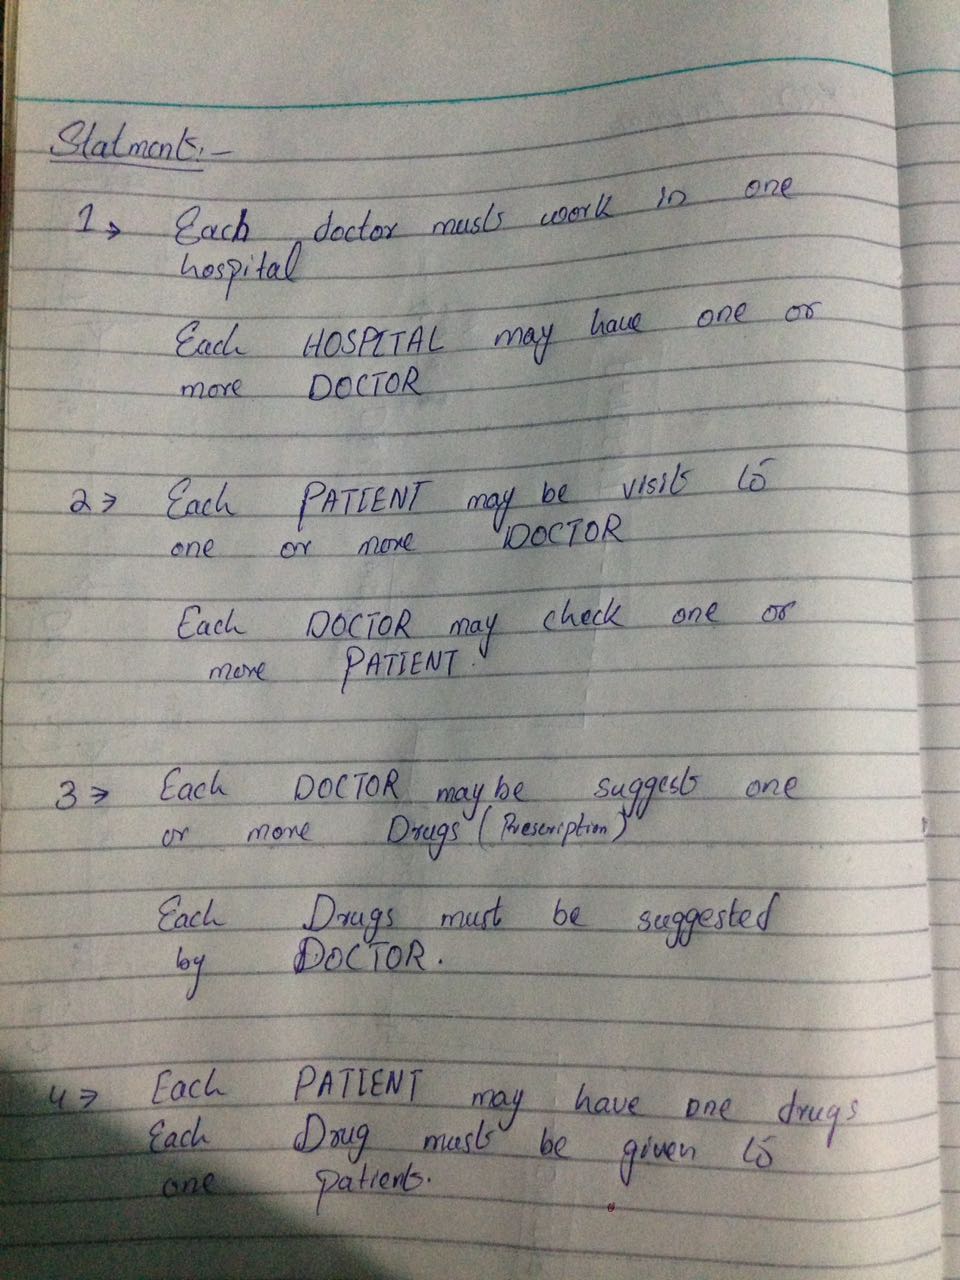 Statments:-
1→ Each doctor must work in one
hospital
Each HOSPITAL may have one or
more DOCTOR
2→ Each PATIENT may be visit to
one or more DOCTOR
Each DOCTOR may check one or
more PATIENT.
3→ Each DOCTOR may be suggest one
or more Drugs (Prescription)
Each Drugs must be suggested
by DOCTOR.
4→ Each PATIENT may have one drugs
Each Drug must be given to
one patient.